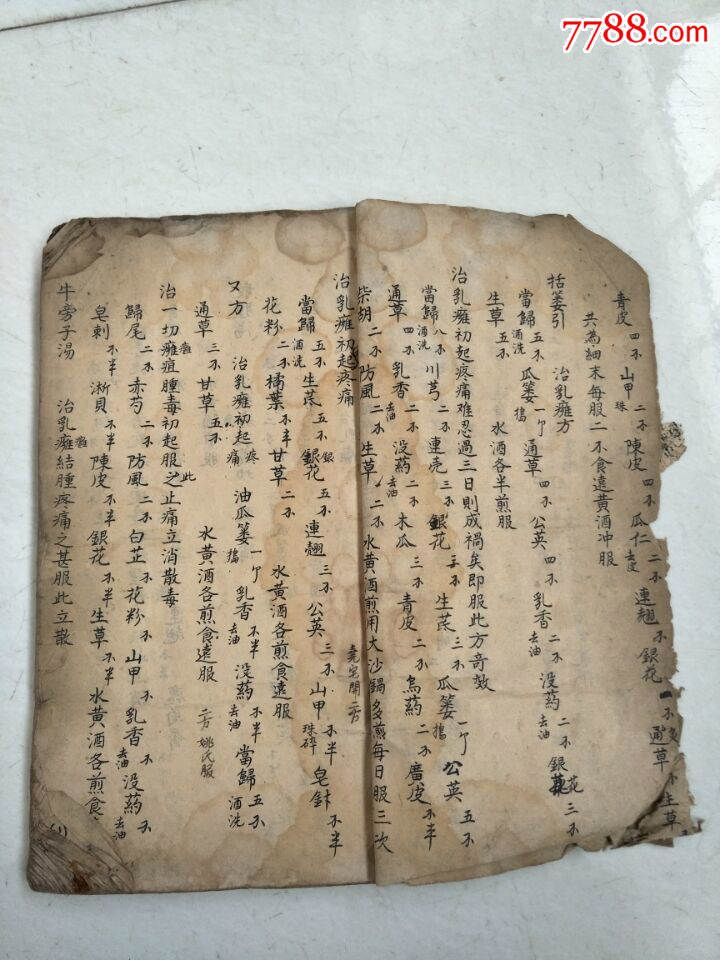 7788.com
青皮 四不 山甲 珠 二不 陳皮 四不 瓜仁 去皮 二不 連翹 不 銀花 一不 通草 不 生草
共為細末每服二不食遠黄酒冲服
括蒌引 治乳癰方
當歸 酒洗 五不 瓜蒌 搗 一个 通草 四不 公英 四不 乳香 去油 二不 没药 去油 二不 銀花 三不
生草 五不 水酒各半煎服
治乳癰初起疼痛难忍過三日則成禍矣即服此方奇效
當歸 酒洗 八不 川芎 二不 連壳 三不 銀花 三不 生芪 三不 瓜蒌 搗 一个 公英 五不
通草 四不 乳香 去油 二不 没药 去油 二不 木瓜 三不 青皮 二不 烏药 二不 廣皮 不半
柴胡 二不 防風 二不 生草 二不 水黄酒煎用大沙鍋多煎每日服三次
治乳癰初起疼痛
當歸 酒洗 五不 生芪 五不 銀花 五不 連翹 三不 公英 三不 山甲 珠碎 不半 皂針 不半
花粉 二不 橘葉 不半 甘草 二不 水黄酒各煎食遠服
又方 治乳癰初起疼痛 油瓜蒌 搗 一个 乳香 去油 不半 没药 去油 不半 當歸 酒洗 五不
通草 三不 甘草 五不 水黄酒各煎食遠服 二方 姚氏服
治一切癰疽腫毒初起服之此止痛立消散毒
歸尾 二不 赤芍 二不 防風 二不 白芷 不 花粉 不 山甲 不 乳香 去油 不 没药 去油 不
皂刺 不半 淅貝 不半 陳皮 不半 銀花 不半 生草 不半 水黄酒各煎食
牛旁子湯 治乳癰結腫疼痛之甚服此立散